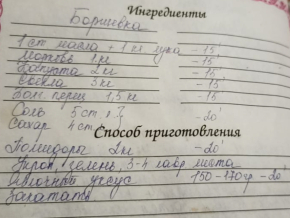 Ингредиенты
Борщевка
1 ст масла + 1 кг лука - 15
Морковь 1 кг - 15
Капуста 2 кг - 15
Свекла 3 кг - 15
Бол. перец 1,5 кг - 15
Соль 5 ст. л - 20'
Сахар 4 ст
Способ приготовления
Помидоры 2 кг - 20'
Укроп, зелень, 3-4 лавр листа
Яблочный уксус 150-170гр - 20'
Закатать